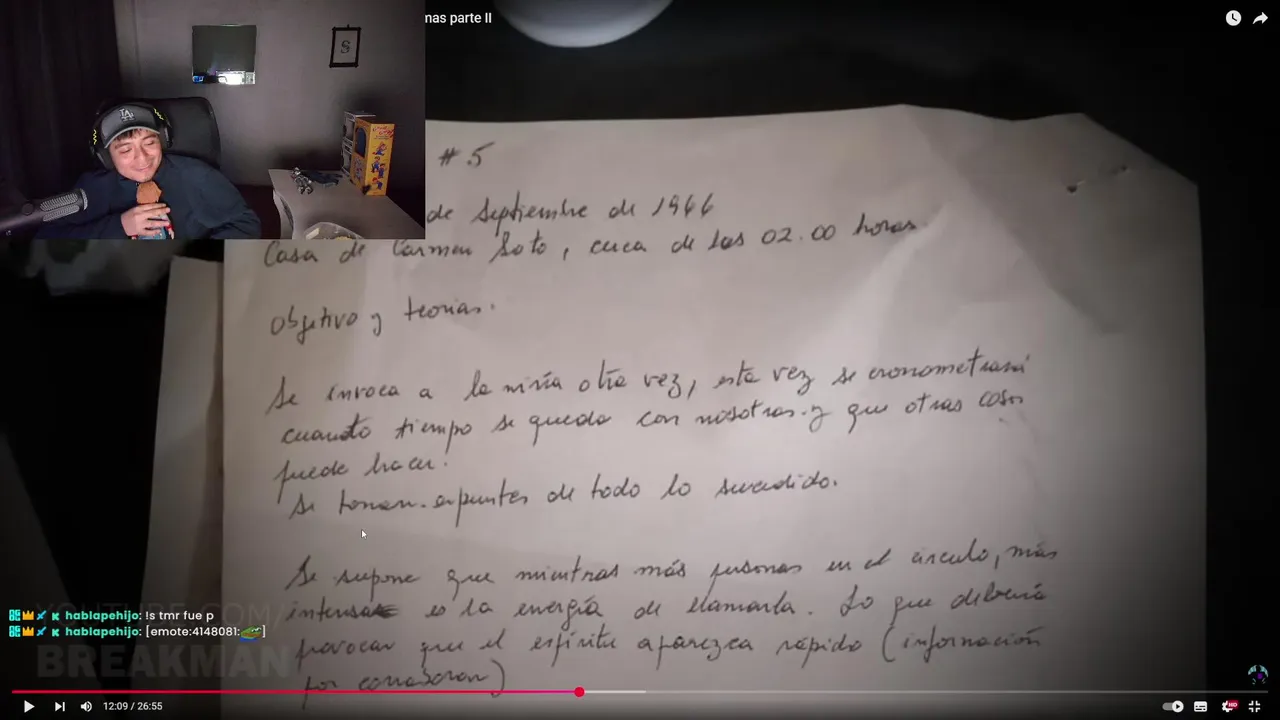 mas parte II
LA
S
# 5
de Septiembre de 1966
Casa de Carmen Soto, cerca de las 02.00 horas.
Objetivo y teorias.
Se invoca a la niña otra vez, esta vez se cronometrará
cuanto tiempo se queda con nosotras y que otras cosas
puede hacer.
Se toman apuntes de todo lo sucedido.
Se supone que mientras más personas en el circulo, más
intensa es la energía de llamarla. Lo que debería
provocar que el espíritu aparezca rápido (información
por corroborar)
hablapehijo: !s tmr fue p
hablapehijo: [emote:4148081: ]
YOUTUBE.COM/
BREAKMAN
12:09 / 26:55
HD